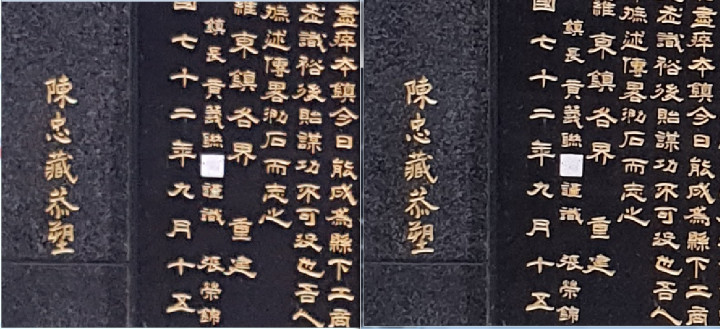 盡瘁本鎮今日能成為縣下工商
識裕後貽謀功不可沒也吾人
述傳畧泐石而志之
羅東鎮各界 重建
鎮長 黃義聯 謹識 張榮錦
國七十二年九月十五
陳忠藏恭塑
盡瘁本鎮今日能成為縣下工商
識裕後貽謀功不可沒也吾人
述傳畧泐石而志之
羅東鎮各界 重建
鎮長 黃義聯 謹識 張榮錦
國七十二年九月十五
陳忠藏恭塑